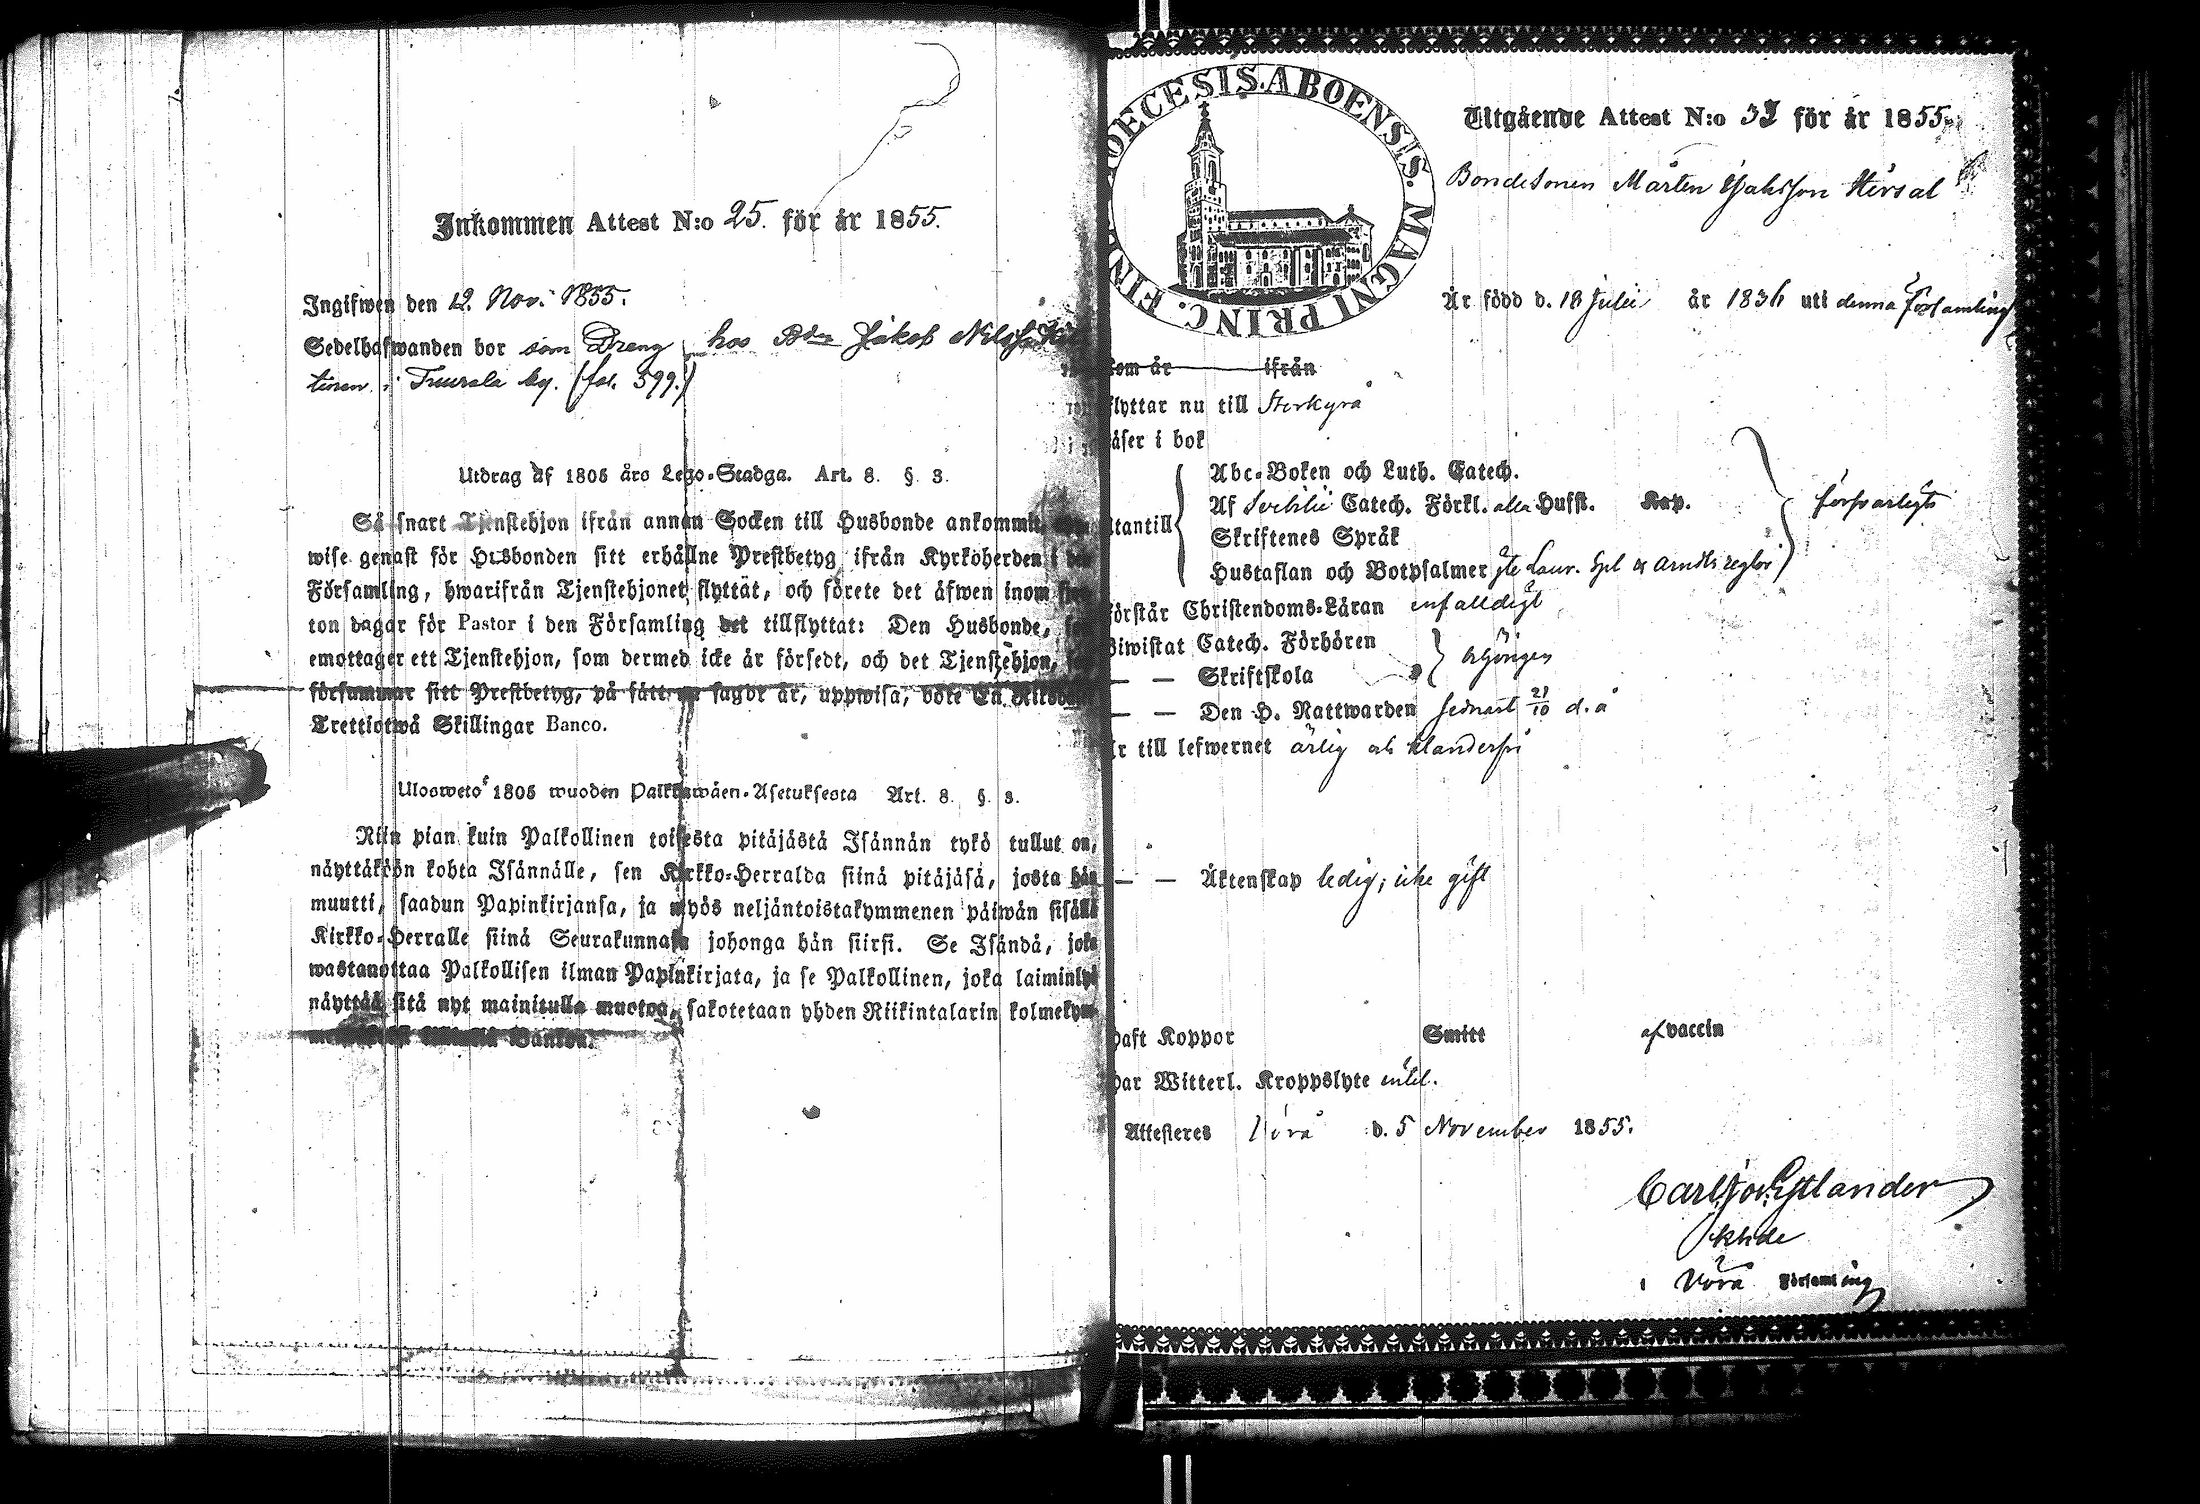 Inkommen Attest N:o 25. för år 1855.
Ingifwen den 12. Nov. 1855.
Sedelhafwanden bor som Dreng hos Bdn Jakob Nilsson
i Tuurala by. (fol. 599.)
Utdrag af 1805 års Lego-Stadga. Art. 8. §. 3.
Så snart Tjenstehjon ifrån annan Socken till Husbonde ankommit,
wise genast för Husbonden sitt erhållne Prestbetyg ifrån Kyrkoherden i den
Församling, hwarifrån Tjenstehjonet flyttat, och förete det äfwen inom
ton dagar för Pastor i den Församling det tillflyttat: Den Husbonde,
emottager ett Tjenstehjon, som dermed icke är försedt, och det Tjenstehjon,
försummar sitt Prestbetyg, på sätt sagdt är, uppwisa, böte En Riksdaler
Trettiotwå Skillingar Banco.
Ulosweto 1805 wuoden Palkkawäen-Asetuksesta Art. 8. §. 3.
Niin pian kuin Palkollinen toisesta pitäjästä Isännän tykö tullut on,
näyttäköön kohta Isännälle, sen Kirkko-Herralda siinä pitäjäsä, josta hän
muutti, saadun Papinkirjansa, ja myös neljäntoistakymmenen päiwän sisällä
Kirkko-Herralle siinä Seurakunnasa johonga hän siirsi. Se Isändä, joka
wastanottaa Palkollisen ilman Papinkirjata, ja se Palkollinen, joka laiminlyö
näyttää sitä nyt mainitulla muotoa, sakotetaan yhden Riikintalarin kolmekym-
Bankoa.
DIOECESIS. ABOENSIS. MAGNI PRINC. FINL
Utgående Attest N:o 33 för år 1855.
Bondesonen Mårten Jakobsson Hersal
Är född d. 18 Julii år 1836 uti denna församling
kom år ifrån
flyttar nu till Storkyrå
läser i bok
Abc-Boken och Luth. Catech.
Af Svebilii Catech. Förkl. alla Husst. Kap.
utantill
Skriftenes Språk
försvarligt
Hustaflan och Botpsalmer jte Laur. Spl o Arndts reglor
förstår Christendoms-Läran enfaldigt
Biwistat Catech. Förhören
— — Skriftskola
behörigen
— — Den H. Nattwarden sednast 21/10 d. å
Är till lefwernet ärlig och klanderfri
— — Äktenskap ledig; icke gift
Haft Koppor Smitt af vaccin
Har Witterl. Kroppslyte intet.
Attesteres Vörå d. 5 November 1855.
Carl Estlander
i Vörå Församling